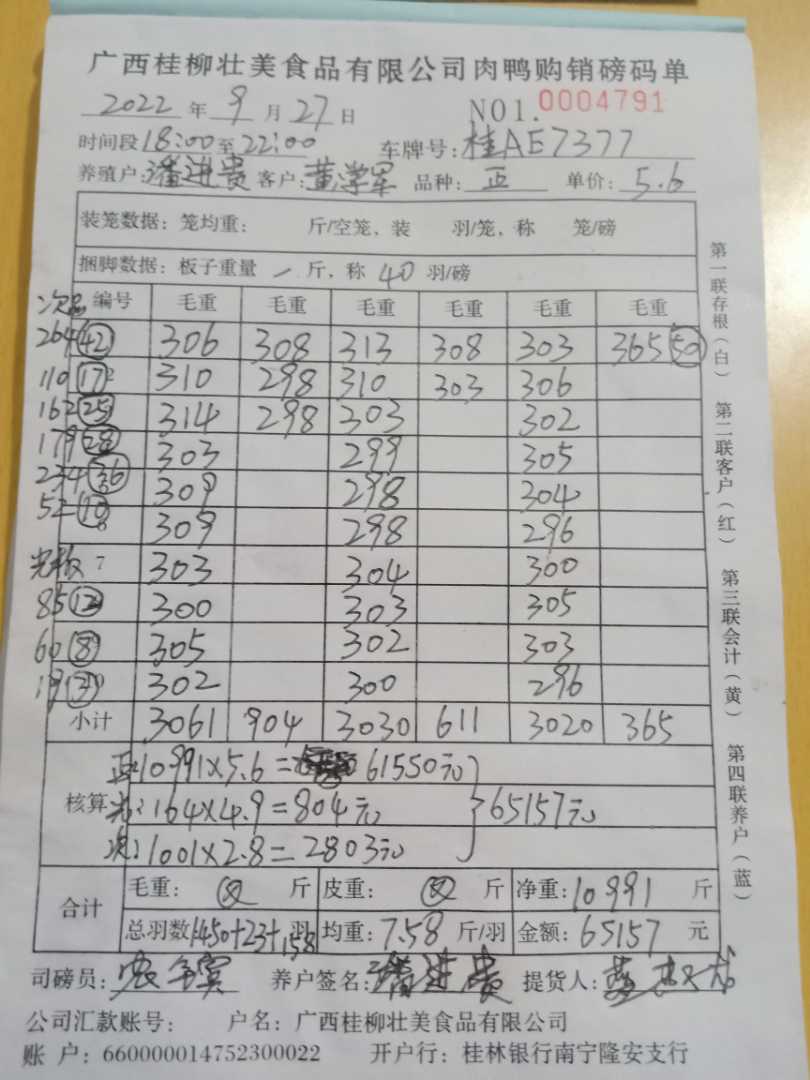 广西桂柳壮美食品有限公司肉鸭购销磅码单
2022年9月27日 NO1.0004791
时间段18:00至22:00 车牌号:桂AE7377
养殖户:潘进贵 客户:黄学军 品种:正 单价:5.6
装笼数据:笼均重: 斤/空笼、装 羽/笼,称 笼/磅
捆脚数据:板子重量 一 斤,称 40 羽/磅
次品 编号 毛重 毛重 毛重 毛重 毛重 毛重
264 42 306 308 313 308 303 365 50
110 17 2 310 298 310 303 306
162 25 314 298 303 302
179 28 303 299 305
234 36 309 298 304
52 10 309 298 296
光板 7 303 304 300
85 12 300 303 305
60 8 305 302 303
19 3 302 300 296
小计 3061 904 3030 611 3020 365
核算
正:10991×5.6=61550元
光:164×4.9=804元 65157元
次:1001×2.8=2803元
合计 毛重: 斤 皮重: 斤 净重:10991 斤
总羽数1450+23+158羽 均重:7.58 斤/羽 金额:65157 元
司磅员: 养户签名:潘进贵 提货人:
公司汇款账号: 户名:广西桂柳壮美食品有限公司
账 户:660000014752300022 开户行:桂林银行南宁隆安支行
第一联存根(白) 第二联客户(红) 第三联会计(黄) 第四联养户(蓝)